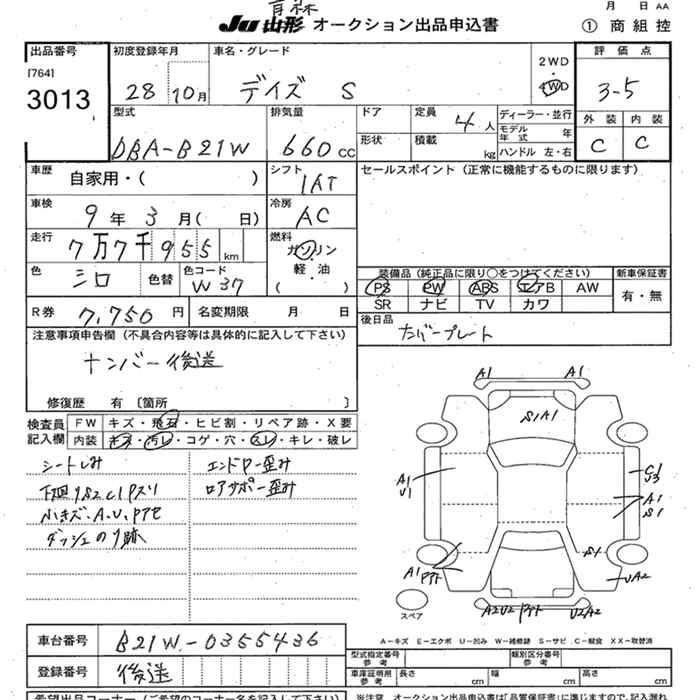 月 日 AA
JU 山形 オークション出品申込書
① 商組控
出品番号
[764]
3013
初度登録年月
28 10月
車名・グレード
デイズ S
2WD
・
4WD
評価点
3-5
外装 内装
C C
型式
DBA-B21W
排気量
660cc
ドア
形状
定員 4人
積載 kg
ディーラー・並行
モデル年式 年
ハンドル 左・右
車歴 自家用・( )
シフト 1AT
セールスポイント(正常に機能するものに限ります)
車検 9年3月( 日)
冷房 AC
走行 7万7千955km
燃料 ガソリン
軽・油
( )
色 シロ 色替 色コード W37
装備品(純正品に限り○をつけてください) 新車保証書
PS PW ABS エアB AW
SR ナビ TV カワ
有・無
R券 7,750円 名変期限 月 日
後日品
ナンバープレート
注意事項申告欄(不具合内容等は具体的に記入して下さい)
ナンバー後送
修復歴 有 〔箇所 〕
検査員記入欄
FW キズ・飛石・ヒビ割・リペア跡・X要
内装 キズ・汚レ・コゲ・穴・スレ・キレ・破レ
シートしみ
エンドロアー歪み
ロアサポー歪み
小キズ・A・U・Pアセ
ダッシュのり跡
A1 A1
S1A1
A1
U1
C1
U3
A1
S1
S1
A1
UA2
スペア
A2U2 U2A2
A-キズ E-エクボ U-凹み W-補修跡 S-サビ C-腐食 XX-取替済
車台番号 B21W-0355436
登録番号 後送
型式指定番号
参考
類別区分番号
参考
車庫証明用
参考
長さ cm 幅 cm 高さ cm
希望出品コーナー(ご希望のコーナー名を記入して下さい)
※注意 オークション出品申込書は「品質保証書」に準じますので、記入漏れ